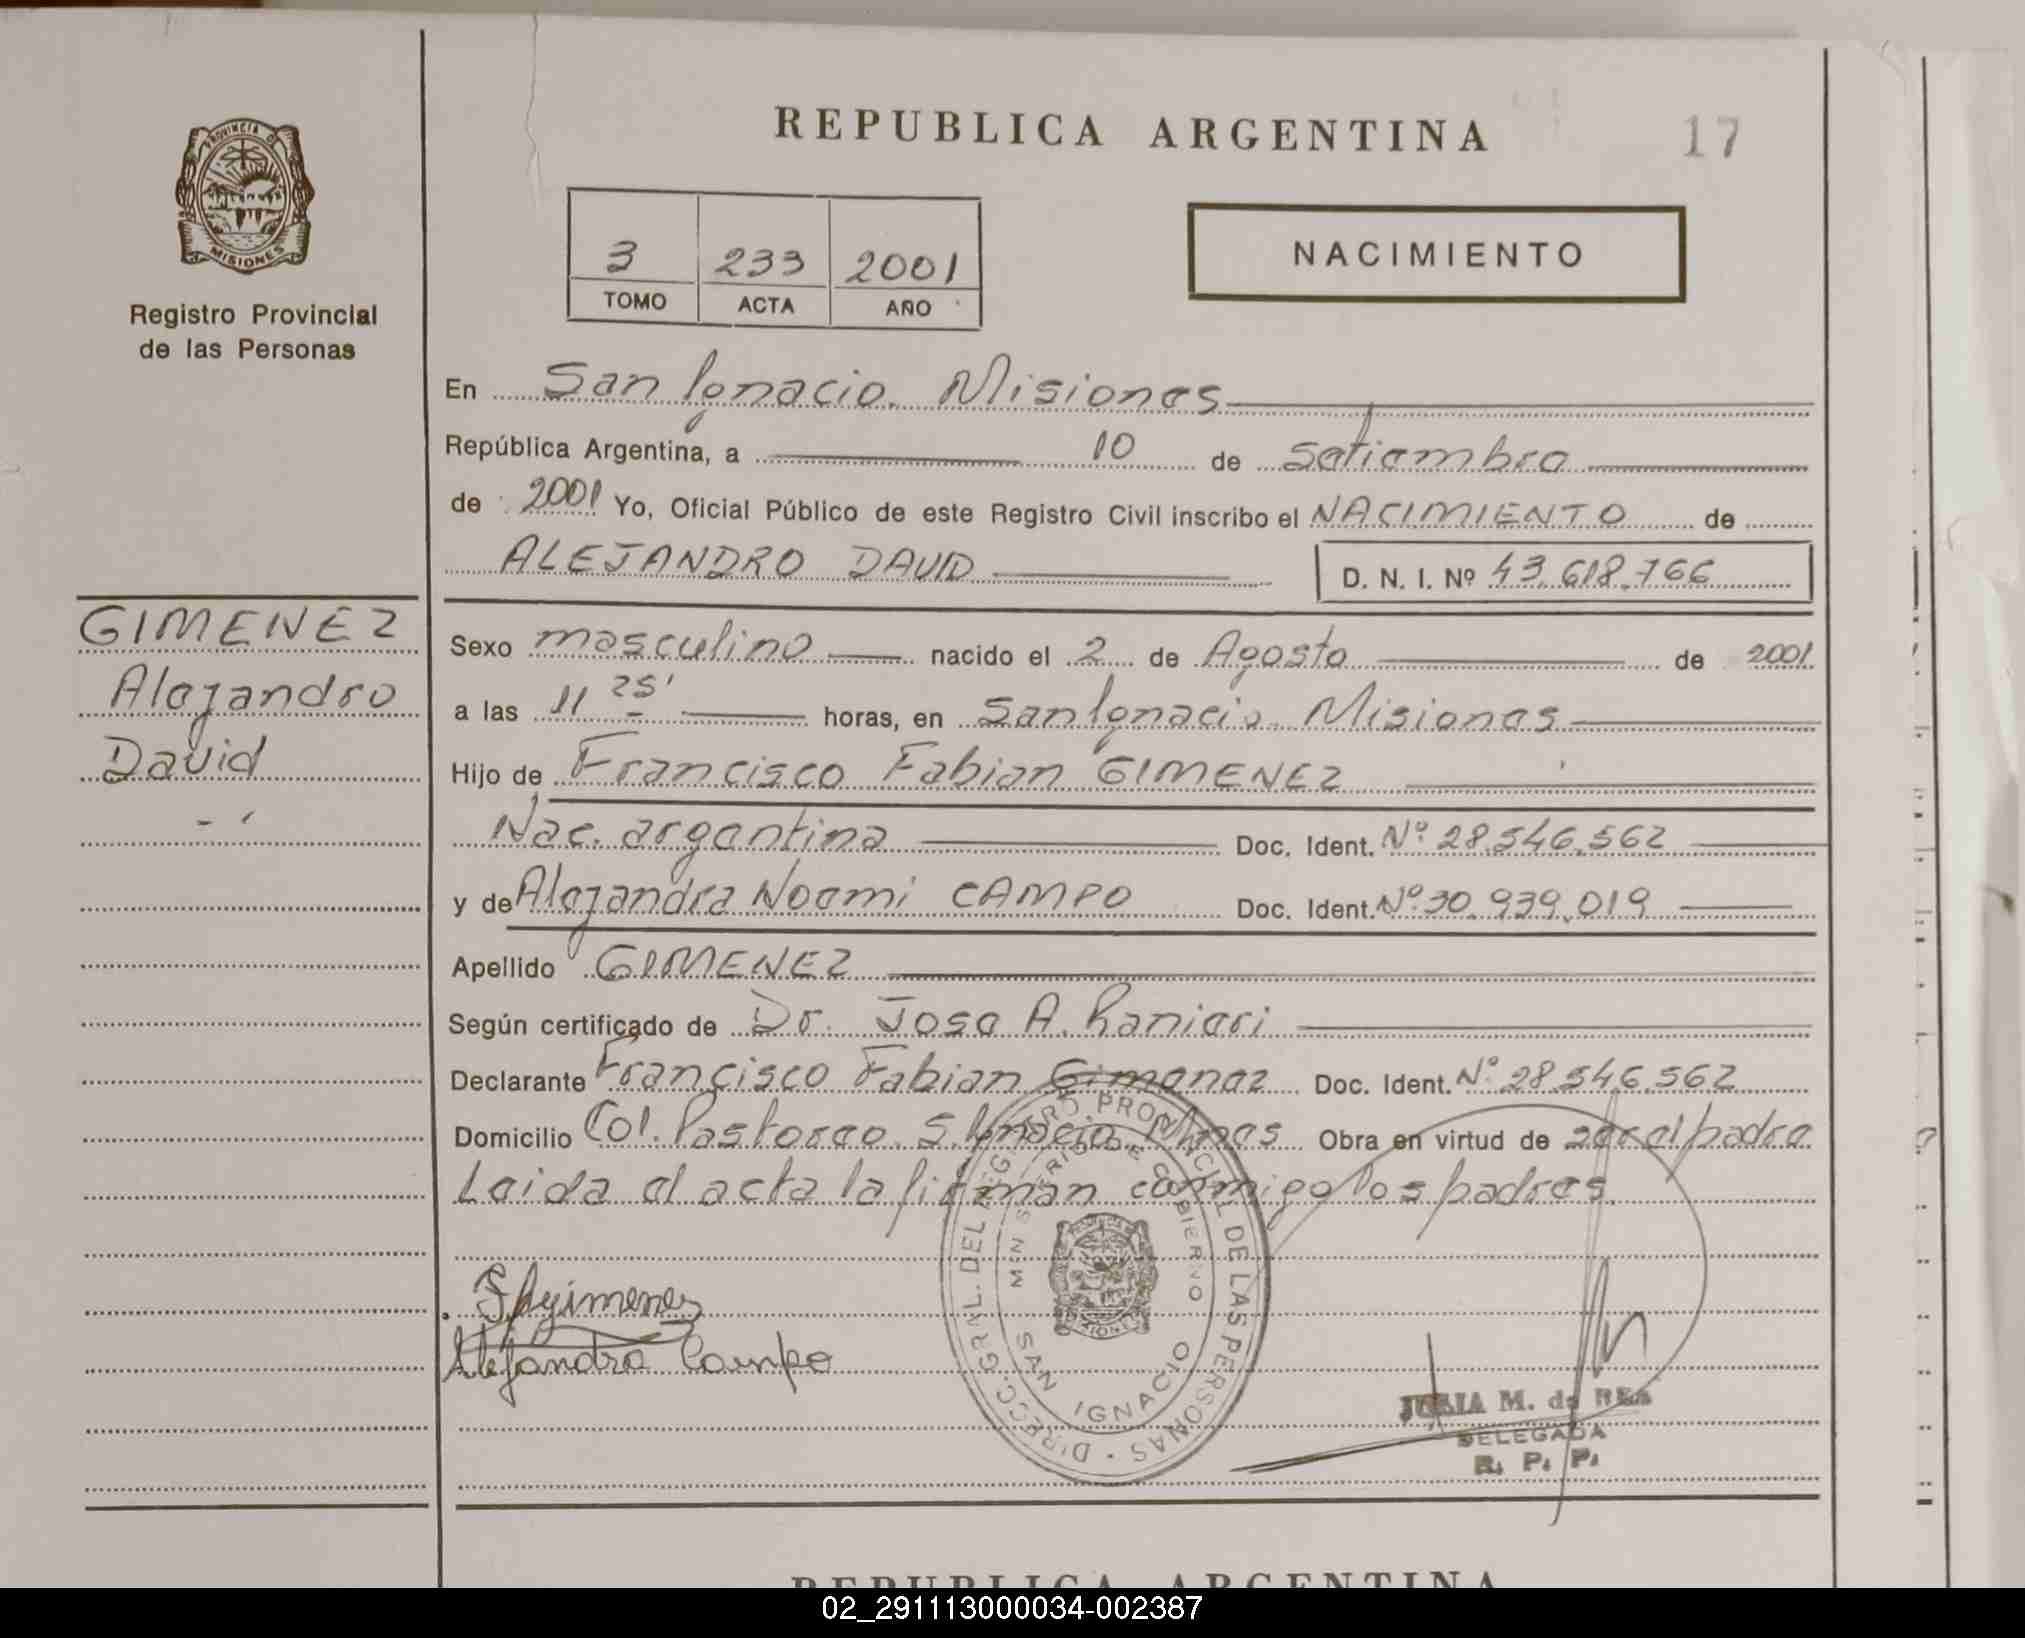 REPUBLICA ARGENTINA
17
PROVINCIA DE
MISIONES
Registro Provincial
de las Personas
3 233 2001
TOMO ACTA AÑO
NACIMIENTO
En San Ignacio. Misiones
República Argentina, a 10 de Setiembre
de 2001 Yo, Oficial Público de este Registro Civil inscribo el NACIMIENTO de
ALEJANDRO DAVID D. N. I. Nº 43.618.766
GIMENEZ
Alejandro
David
Sexo masculino nacido el 2 de Agosto de 2001
a las 11 25' horas, en San Ignacio. Misiones
Hijo de Francisco Fabian GIMENEZ
Nac. argentina Doc. Ident. Nº 28.546.562
y de Alejandra Noemi CAMPO Doc. Ident. Nº 30.939.019
Apellido GIMENEZ
Según certificado de Dr. Jose A. Ranieri
Declarante Francisco Fabian Gimenez Doc. Ident. Nº 28.546.562
Domicilio Col. Pastoreo. S. Ignacio. Mnes Obra en virtud de ser el padre
Leida el acta la firman conmigo los padres.
Gimenez
Alejandra Campo
DIRECC. GRAL. DEL REGISTRO PROVINCIAL DE LAS PERSONAS
MINISTERIO DE GOBIERNO
MISIONES
SAN IGNACIO
JULIA M. de REA
DELEGADA
R. P. P.
REPUBLICA ARGENTINA
02_291113000034-002387